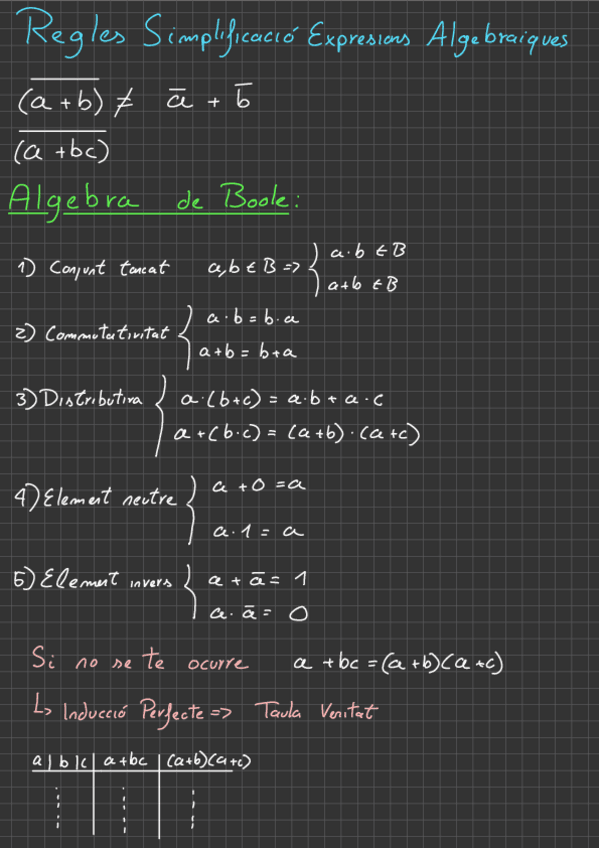 Regles Simplificació Expresions Algebraiques
\overline{(a + b)} ≠ \overline{a} + \overline{b}
\overline{(a + bc)}
Algebra de Boole:
1) Conjunt tancat a,b ∈ B => { a·b ∈ B
a+b ∈ B
2) Commutativitat { a·b = b·a
a+b = b+a
3) Distributiva { a·(b+c) = a·b + a·c
a+(b·c) = (a+b)·(a+c)
4) Element neutre { a + 0 = a
a·1 = a
5) Element invers { a + ā = 1
a·ā = 0
Si no se te ocurre a + bc = (a+b)(a+c)
↳ Inducció Perfecte => Taula Veritat
a | b | c | a+bc | (a+b)(a+c)